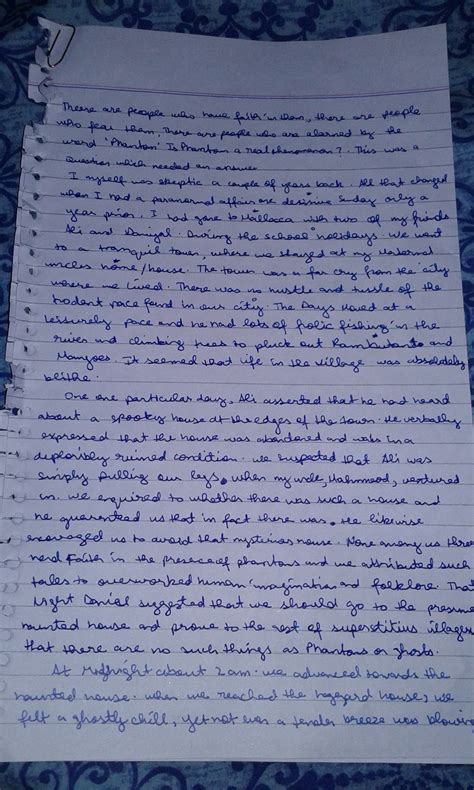 There are people who have faith in them, there are people
who fear them, There are people who are alarmed by the
word 'Phantom' Is Phantom a real phenomenon? This was a
Question which needed an answer
I myself was skeptic a couple of years back. All that changed
when I had a paranormal affair one decisive Sunday only a
year prior. I had gone to Mallacca with two of my friends
Ali and Daniyal. During the school holidays. We went
to a tranquil town, where we stayed at my maternal
uncles home/house. The town was a far cry from the city
where we lived. There was no hustle and tussle of the
rodent pace found in our city. The Days Moved at a
leisurely pace and we had lots of frolic fishing in the
river and climbing trees to pluck out Rambutants and
Mangoes. It seemed that life in the village was absolutely
blithe.
One one particular day, Ali asserted that he had heard
about a spooky house at the edges of the town. He verbally
expressed that the house was abandoned and was in a
deplorably ruined condition. we suspected that Ali was
simply pulling our legs, when my uncle, Mahmood, ventured
in. we enquired to whether there was such a house and
he guarenteed us that in fact there was. He likewise
encouraged us to avoid that mysterious house. None among us three
had Faith in the presence of phantoms and we attributed such
tales to overworked human imagination and folklore. That
Night Danial suggested that we should go to the presume
haunted house and prove to the rest of superstitius villagers
that there are no such things as Phantoms or ghosts.
At Midnight about 2 am. we advanced towards the
haunted house. when we reached the haggard house, we
felt a ghostly chill, yet not even a tender breeze was blowing